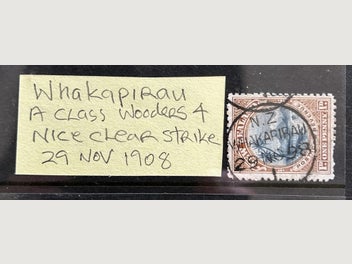 Whakapirau
A Class Wooders 4
Nice clear strike
29 NOV 1908
N.Z
WHAKAPIRAU
29 NO 98